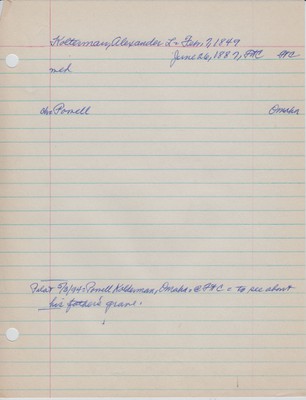 Kolterman, Alexander L - Feb. 7, 1849
June 26, 1887, FHC FHC
meh
ch: Powell Omaha
5/2/94 - Powell Kolterman, Omaha, @ FHC - to see about
his father's grave.